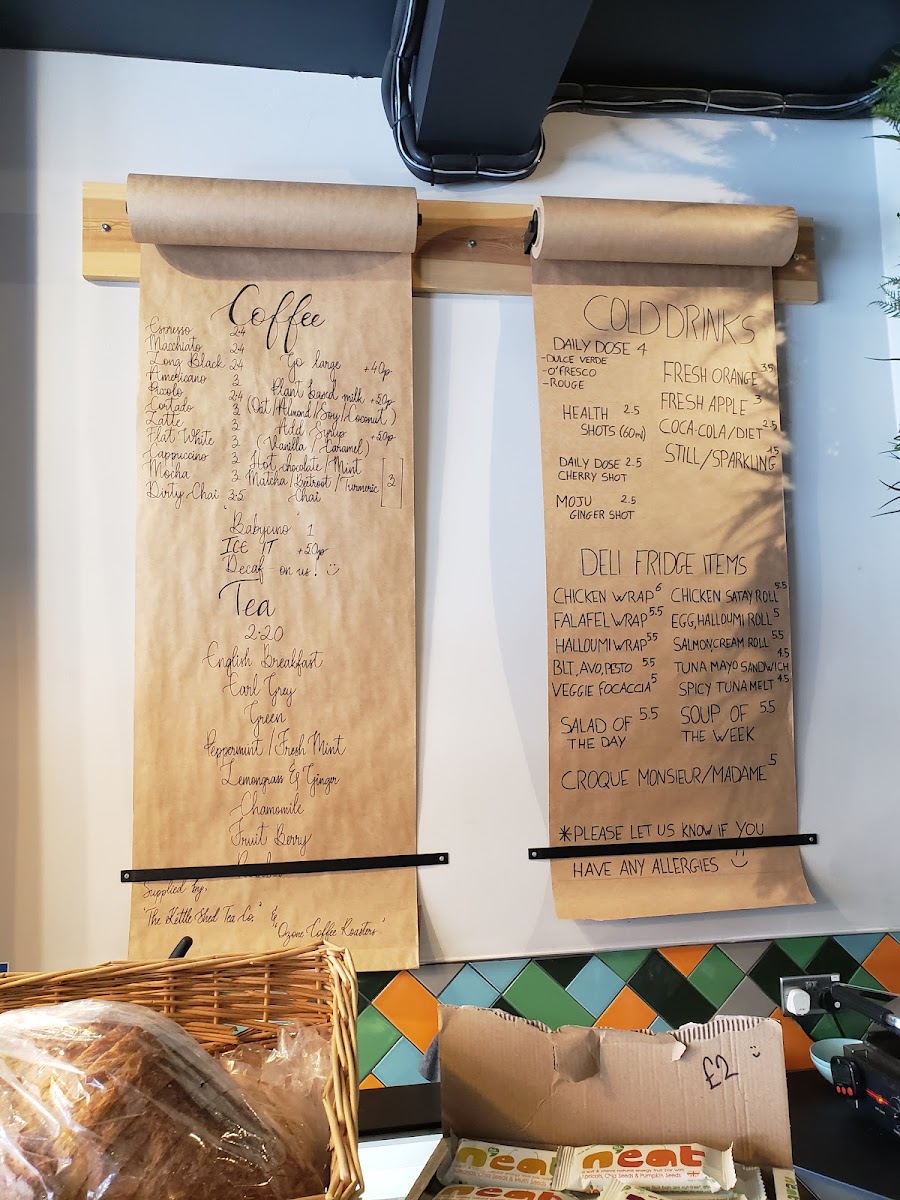 Coffee
Espresso 2.4
Macchiato 2.4
Long Black 2.4
Americano 3
Piccolo 2.4
Cortado 3
Latte 3
Flat White 3
Cappuccino 3
Mocha 3
Dirty Chai 3.5
Go large +40p
Plant based milk +50p
(Oat/Almond/Soy/Coconut)
Add Syrup +50p
(Vanilla/Caramel)
Hot chocolate/Mint
Matcha/Beetroot/Turmeric
Chai
3
"Babycino" 1
ICE IT +50p
Decaf - on us!
Tea
2.20
English Breakfast
Earl Grey
Green
Peppermint/Fresh Mint
Lemongrass & Ginger
Chamomile
Fruit Berry
Supplied by:
"The Kettle Shed Tea Co." &
"Ozone Coffee Roasters"
COLD DRINKS
DAILY DOSE 4
-DULCE VERDE
-O'FRESCO
-ROUGE
HEALTH 2.5
SHOTS (60ml)
DAILY DOSE 2.5
CHERRY SHOT
MOJU 2.5
GINGER SHOT
FRESH ORANGE 3.5
FRESH APPLE 3
COCA-COLA/DIET 2.5
STILL/SPARKLING 1.5
DELI FRIDGE ITEMS
CHICKEN WRAP 6
FALAFEL WRAP 5.5
HALLOUMI WRAP 5.5
BLT, AVO, PESTO 5.5
VEGGIE FOCACCIA 5
CHICKEN SATAY ROLL 5.5
EGG, HALLOUMI ROLL 5
SALMON, CREAM ROLL 5.5
TUNA MAYO SANDWICH 4.5
SPICY TUNA MELT 4.5
SALAD OF 5.5
THE DAY
SOUP OF 5.5
THE WEEK
CROQUE MONSIEUR/MADAME 5
*PLEASE LET US KNOW IF YOU
HAVE ANY ALLERGIES
£2
neat
neat
Apricots, Chia Seeds & Pumpkin Seeds